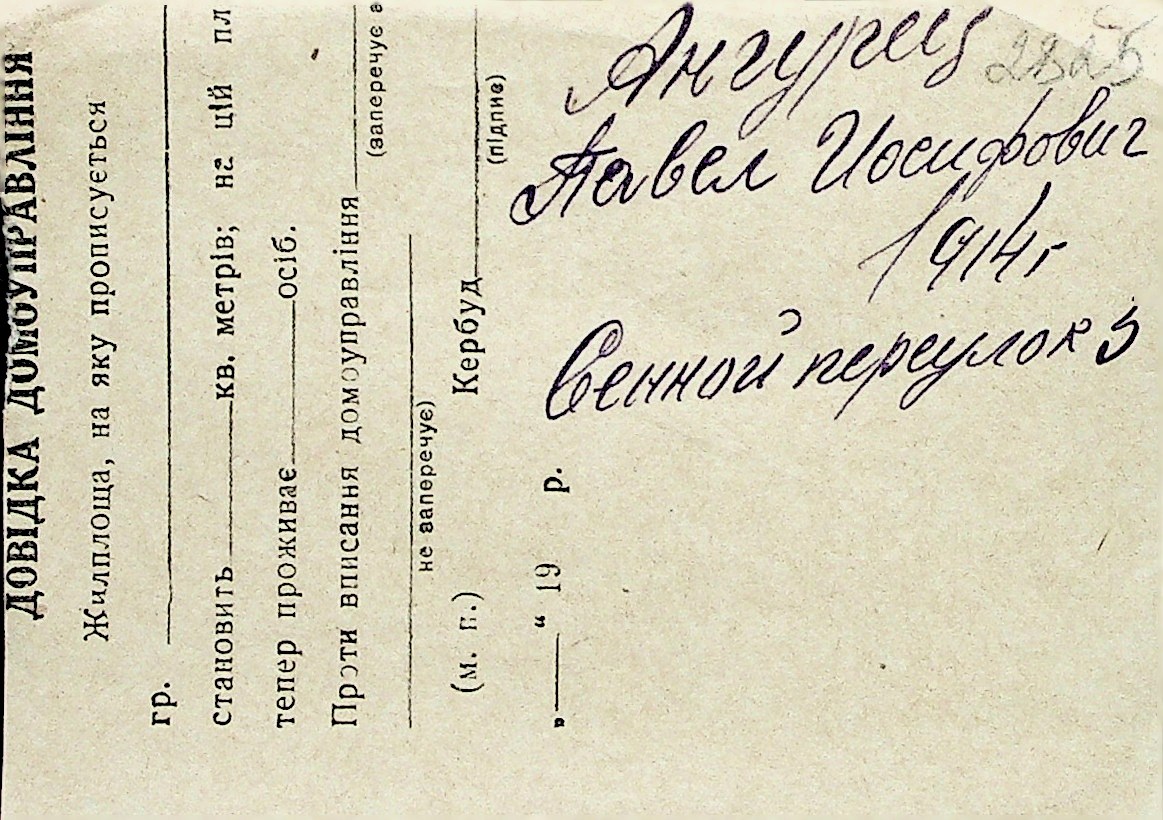 ДОВІДКА ДОМОУПРАВЛІННЯ
Жилплоща, на яку прописується
гр.
становить кв. метрів; на цій пл
тепер проживає осіб.
Проти вписання домоуправління
(заперечує а
не заперечує)
(м. п.) Кербуд
(підпис)
„ “ 19 р.
Ангурец
Павел Иосифович
1914г
Сенной переулок 5